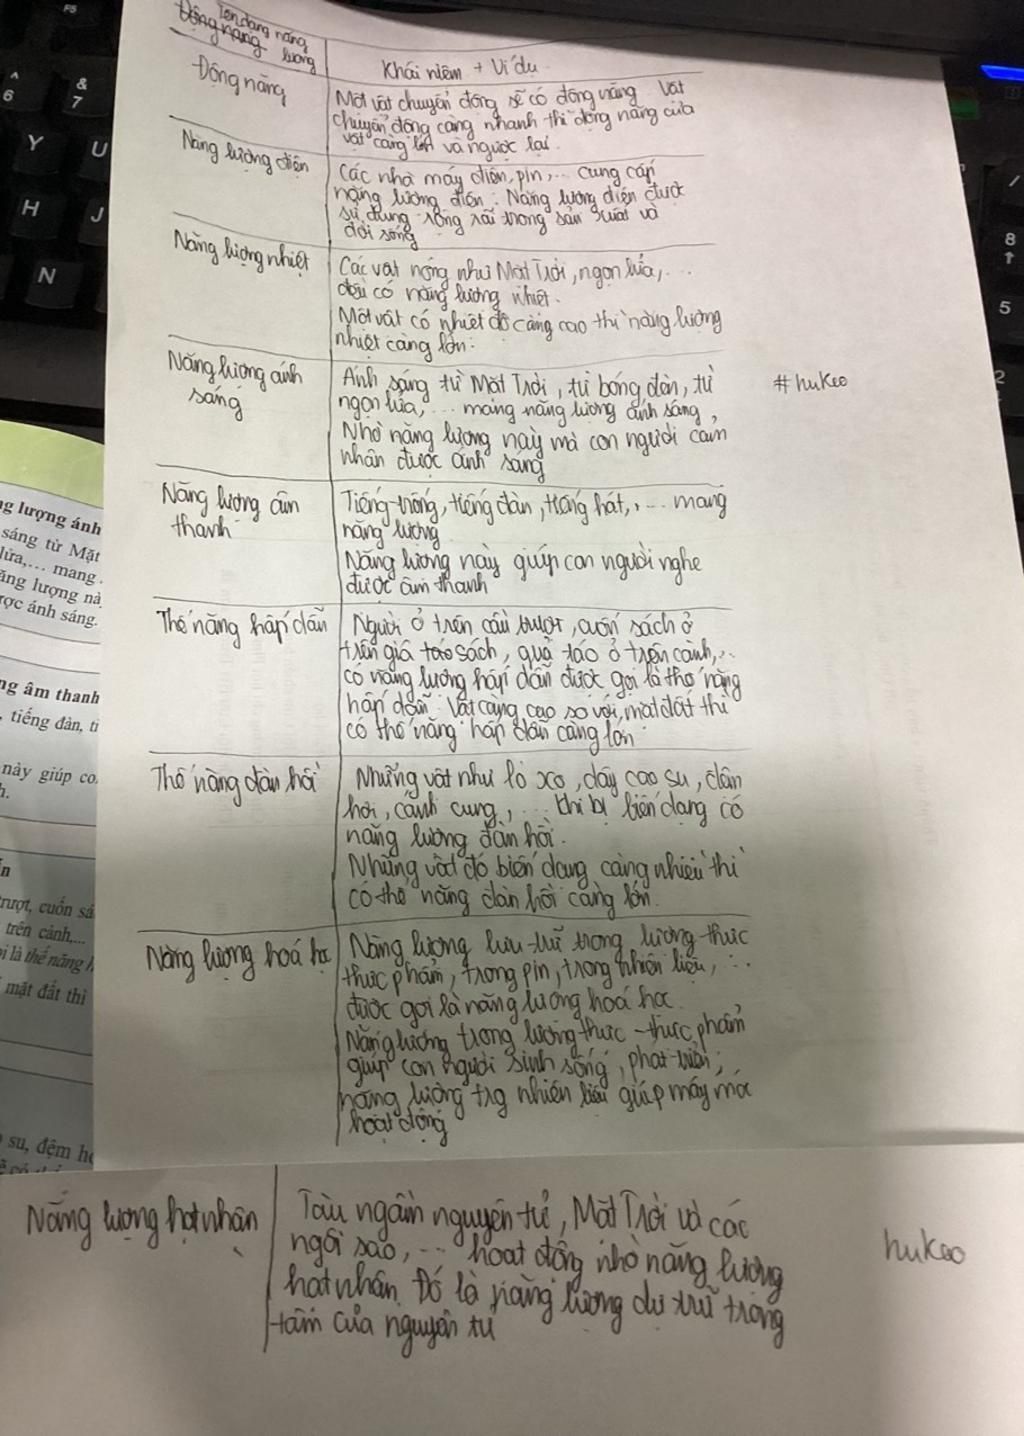 Tên dạng năng lượng
Khái niệm + Ví dụ
Động năng
Một vật chuyển động sẽ có động năng. Vật
chuyển động càng nhanh thì động năng của
vật càng lớn và ngược lại.
Năng lượng điện
Các nhà máy điện, pin,... cung cấp
năng lượng điện. Năng lượng điện được
sử dụng rộng rãi trong sản xuất và
đời sống
Năng lượng nhiệt
Các vật nóng như Mặt Trời, ngọn lửa,...
đều có năng lượng nhiệt.
Một vật có nhiệt độ càng cao thì năng lượng
nhiệt càng lớn.
Năng lượng ánh
sáng
Ánh sáng từ Mặt Trời, từ bóng đèn, từ
ngọn lửa,... mang năng lượng ánh sáng,
Nhờ năng lượng này mà con người cảm
nhận được ánh sáng
#hukeo
Năng lượng âm
thanh
Tiếng trống, tiếng đàn, tiếng hát,... mang
năng lượng
Năng lượng này giúp con người nghe
được âm thanh
Thế năng hấp dẫn
Người ở trên cầu trượt, cuốn sách ở
trên giá sách, quả táo ở trên cành,...
có năng lượng hấp dẫn được gọi là thế năng
hấp dẫn. Vật càng cao so với mặt đất thì
có thế năng hấp dẫn càng lớn.
Thế năng đàn hồi
Những vật như lò xo, dây cao su,
hơi, cánh cung,... khi bị biến dạng có
năng lượng đàn hồi.
Những vật đó biến dạng càng nhiều thì
có thế năng đàn hồi càng lớn.
Năng lượng hoá học
Năng lượng lưu trữ trong lương thực
thực phẩm, trong pin, trong nhiên liệu,...
được gọi là năng lượng hoá học.
Năng lượng trong lương thực - thực phẩm
giúp con người sinh sống, phát triển;
năng lượng trg nhiên liệu giúp máy móc
hoạt động
Năng lượng hạt nhân
Tàu ngầm nguyên tử, Mặt Trời và các
ngôi sao,... hoạt động nhờ năng lượng
hạt nhân. Đó là năng lượng dự trữ trong
tâm của nguyên tử
hukeo
ng lượng ánh
sáng từ Mặt
lửa,... mang
ăng lượng nà
ợc ánh sáng.
ng âm thanh
, tiếng đàn, ti
này giúp co
h.
trượt, cuốn sá
trên cành,...
i là thế năng h
mặt đất thì
su, đệm h